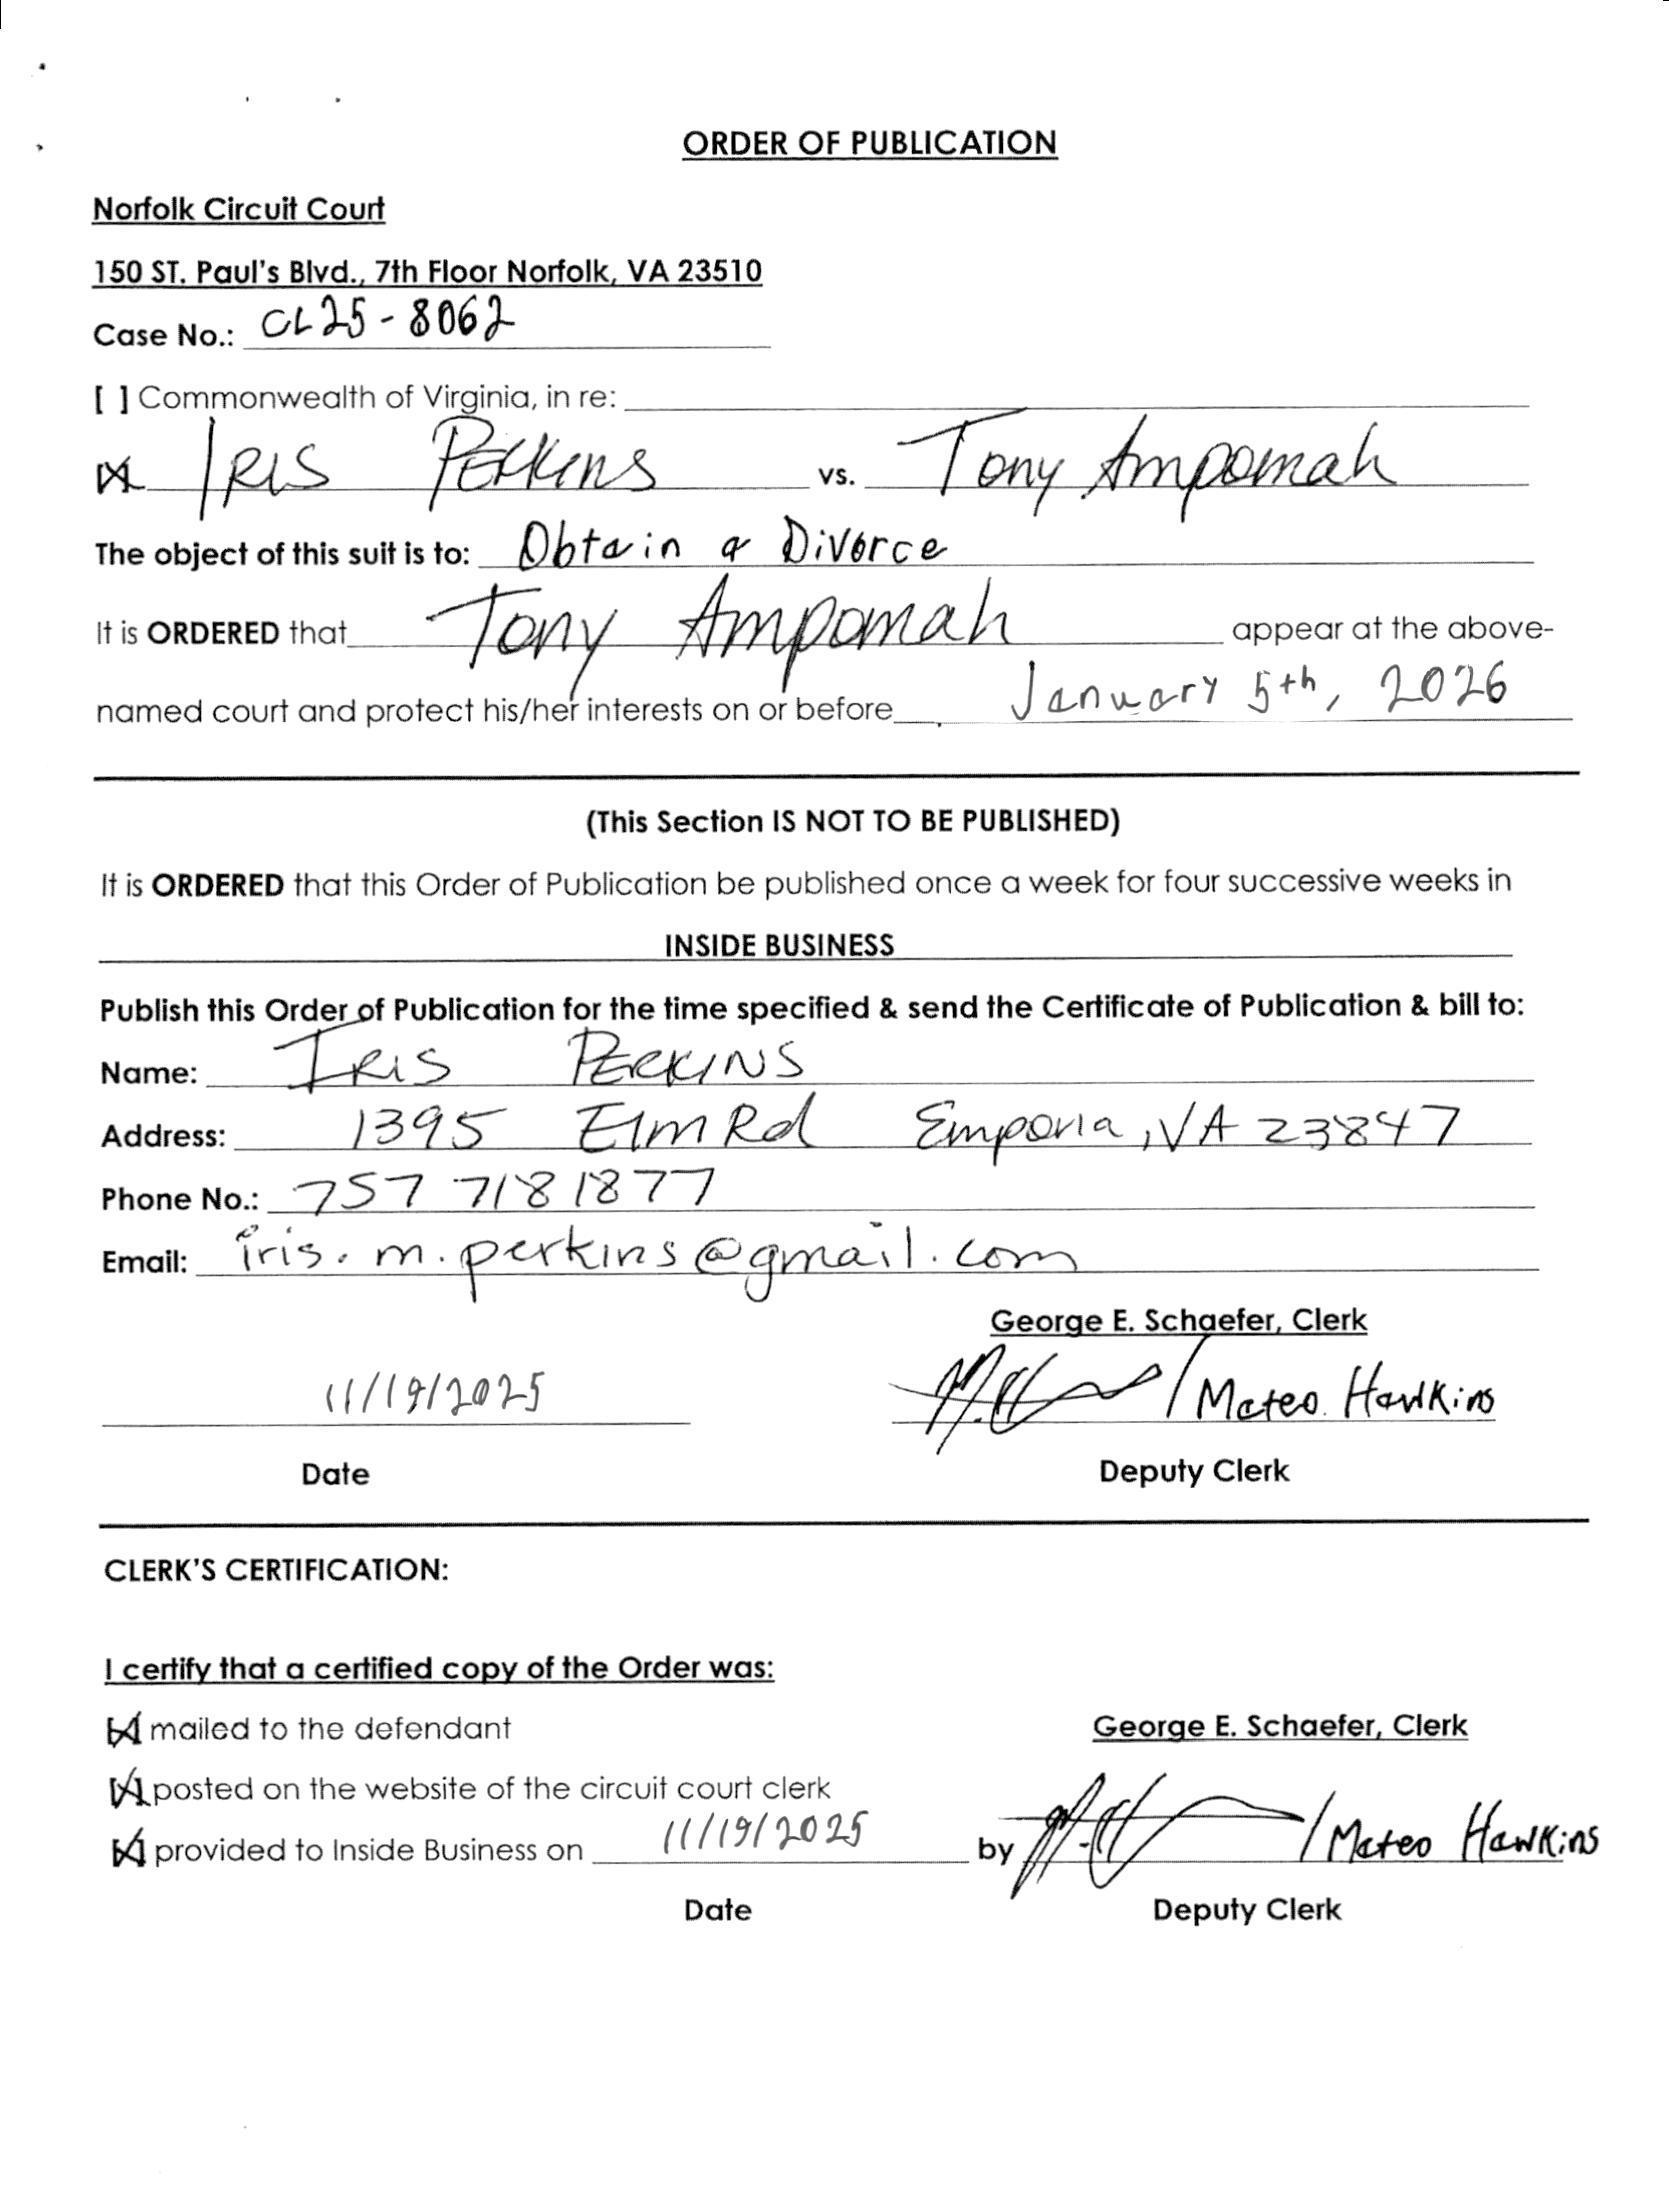 ORDER OF PUBLICATION
Norfolk Circuit Court
150 ST. Paul's Blvd., 7th Floor Norfolk, VA 23510
Case No.: CL25-8062
[ ] Commonwealth of Virginia, in re:
[X] Iris Perkins vs. Tony Ampomah
The object of this suit is to: Obtain a Divorce
It is ORDERED that Tony Ampomah appear at the above-
named court and protect his/her interests on or before January 5th, 2026
(This Section IS NOT TO BE PUBLISHED)
It is ORDERED that this Order of Publication be published once a week for four successive weeks in
INSIDE BUSINESS
Publish this Order of Publication for the time specified & send the Certificate of Publication & bill to:
Name: IRIS PERKINS
Address: 1395 Elm Rd Emporia, VA 23847
Phone No.: 757 718 1877
Email: iris.m.perkins@gmail.com
George E. Schaefer, Clerk
11/19/2025 / Mateo Hawkins
Date Deputy Clerk
CLERK'S CERTIFICATION:
I certify that a certified copy of the Order was:
[X] mailed to the defendant George E. Schaefer, Clerk
[X] posted on the website of the circuit court clerk
[X] provided to Inside Business on 11/19/2025 by / Mateo Hawkins
Date Deputy Clerk